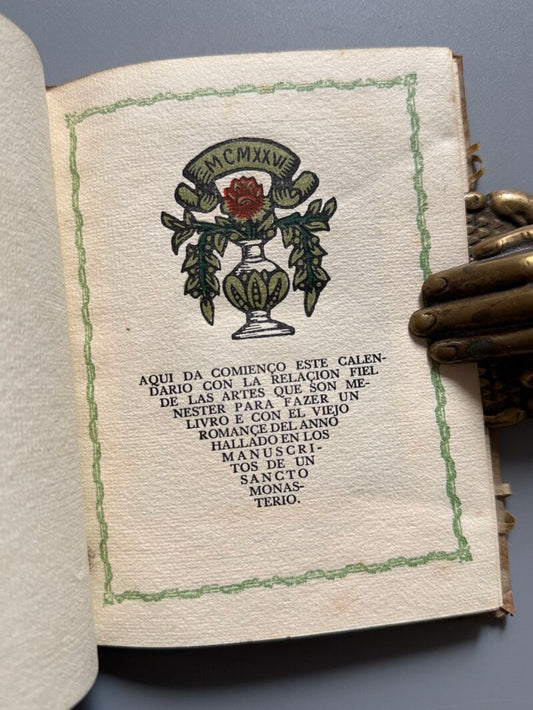 MCMXXVI
AQUI DA COMIENÇO ESTE CALEN-
DARIO CON LA RELAÇION FIEL
DE LAS ARTES QUE SON ME-
NESTER PARA FAZER UN
LIVRO E CON EL VIEJO
ROMANÇE DEL ANNO
HALLADO EN LOS
MANUSCRI-
TOS DE UN
SANCTO
MONAS-
TERIO.